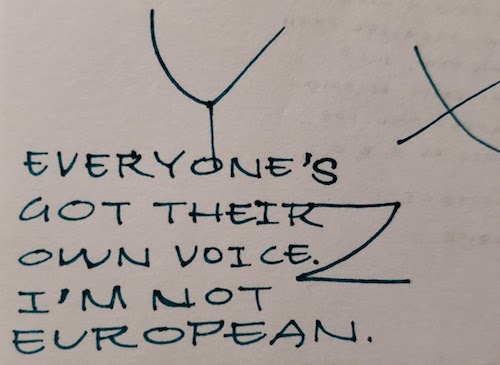 Y X
EVERYONE'S
GOT THEIR
Z
OWN VOICE.
I'M NOT
EUROPEAN.